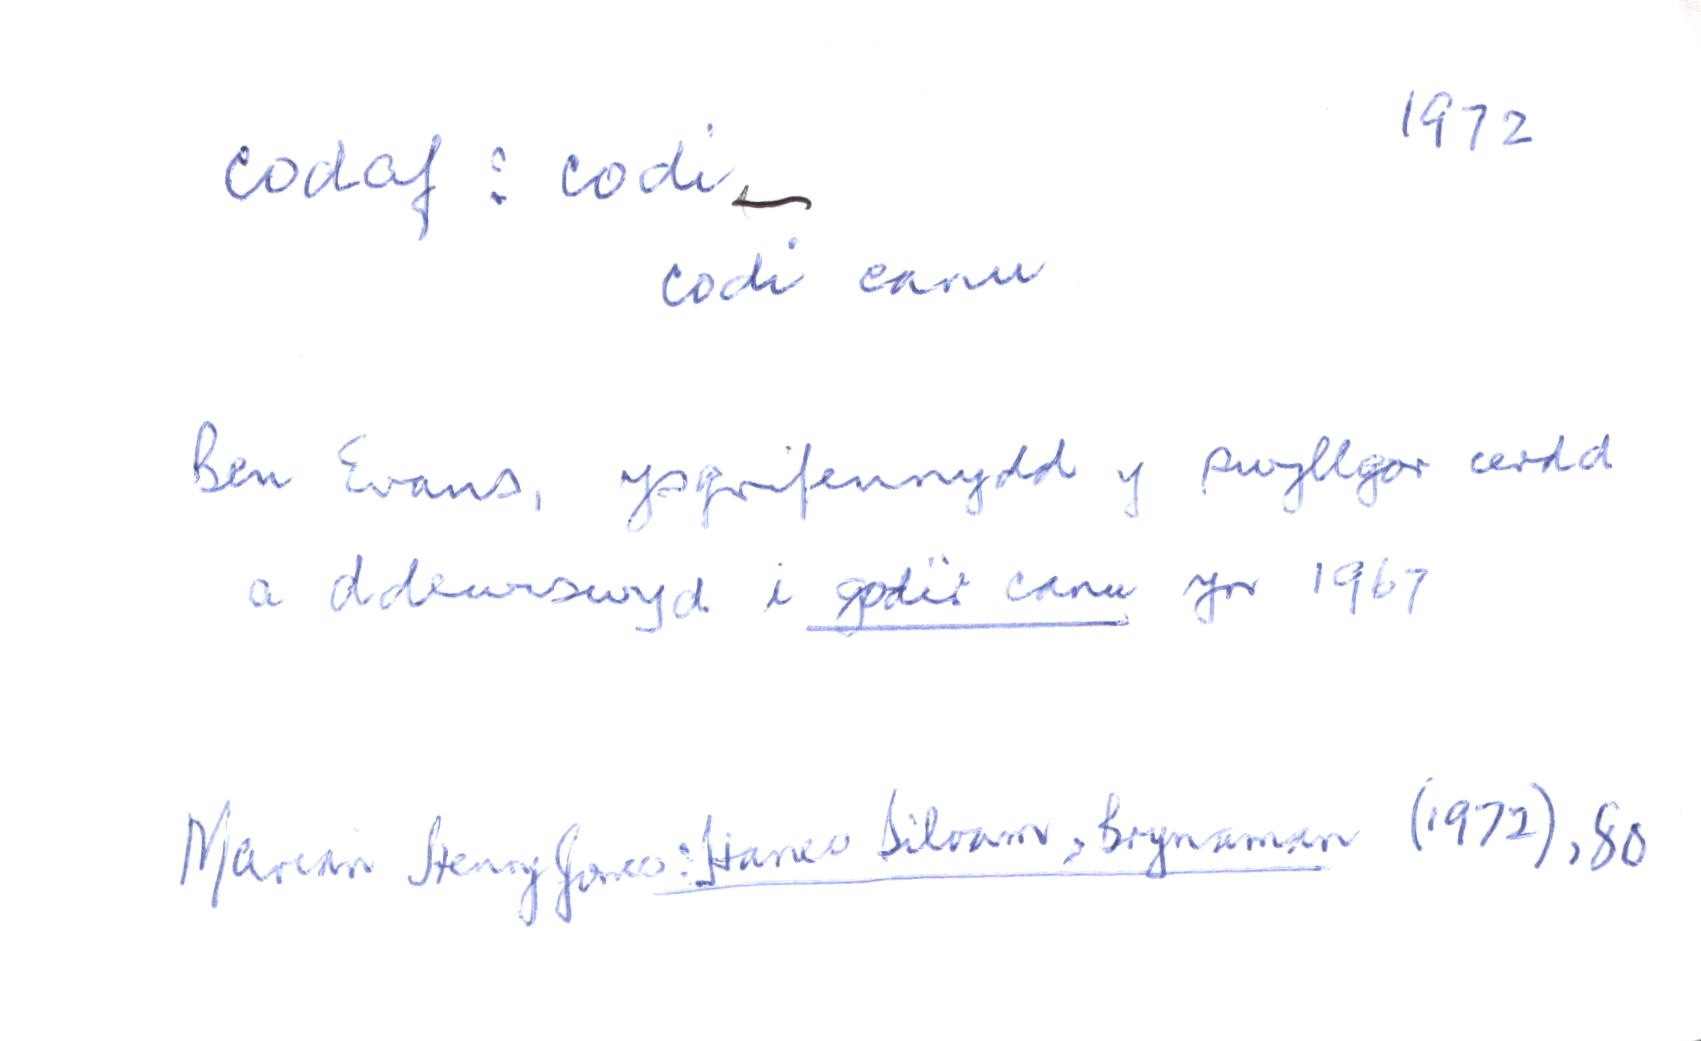 1972
codaf : codi
codi canu
Ben Evans, ysgrifennydd y pwyllgor cerdd
a ddewiswyd i godi'r canu yn 1967
Marian Henry Jones: Hanes Siloam, Brynaman (1972), 80